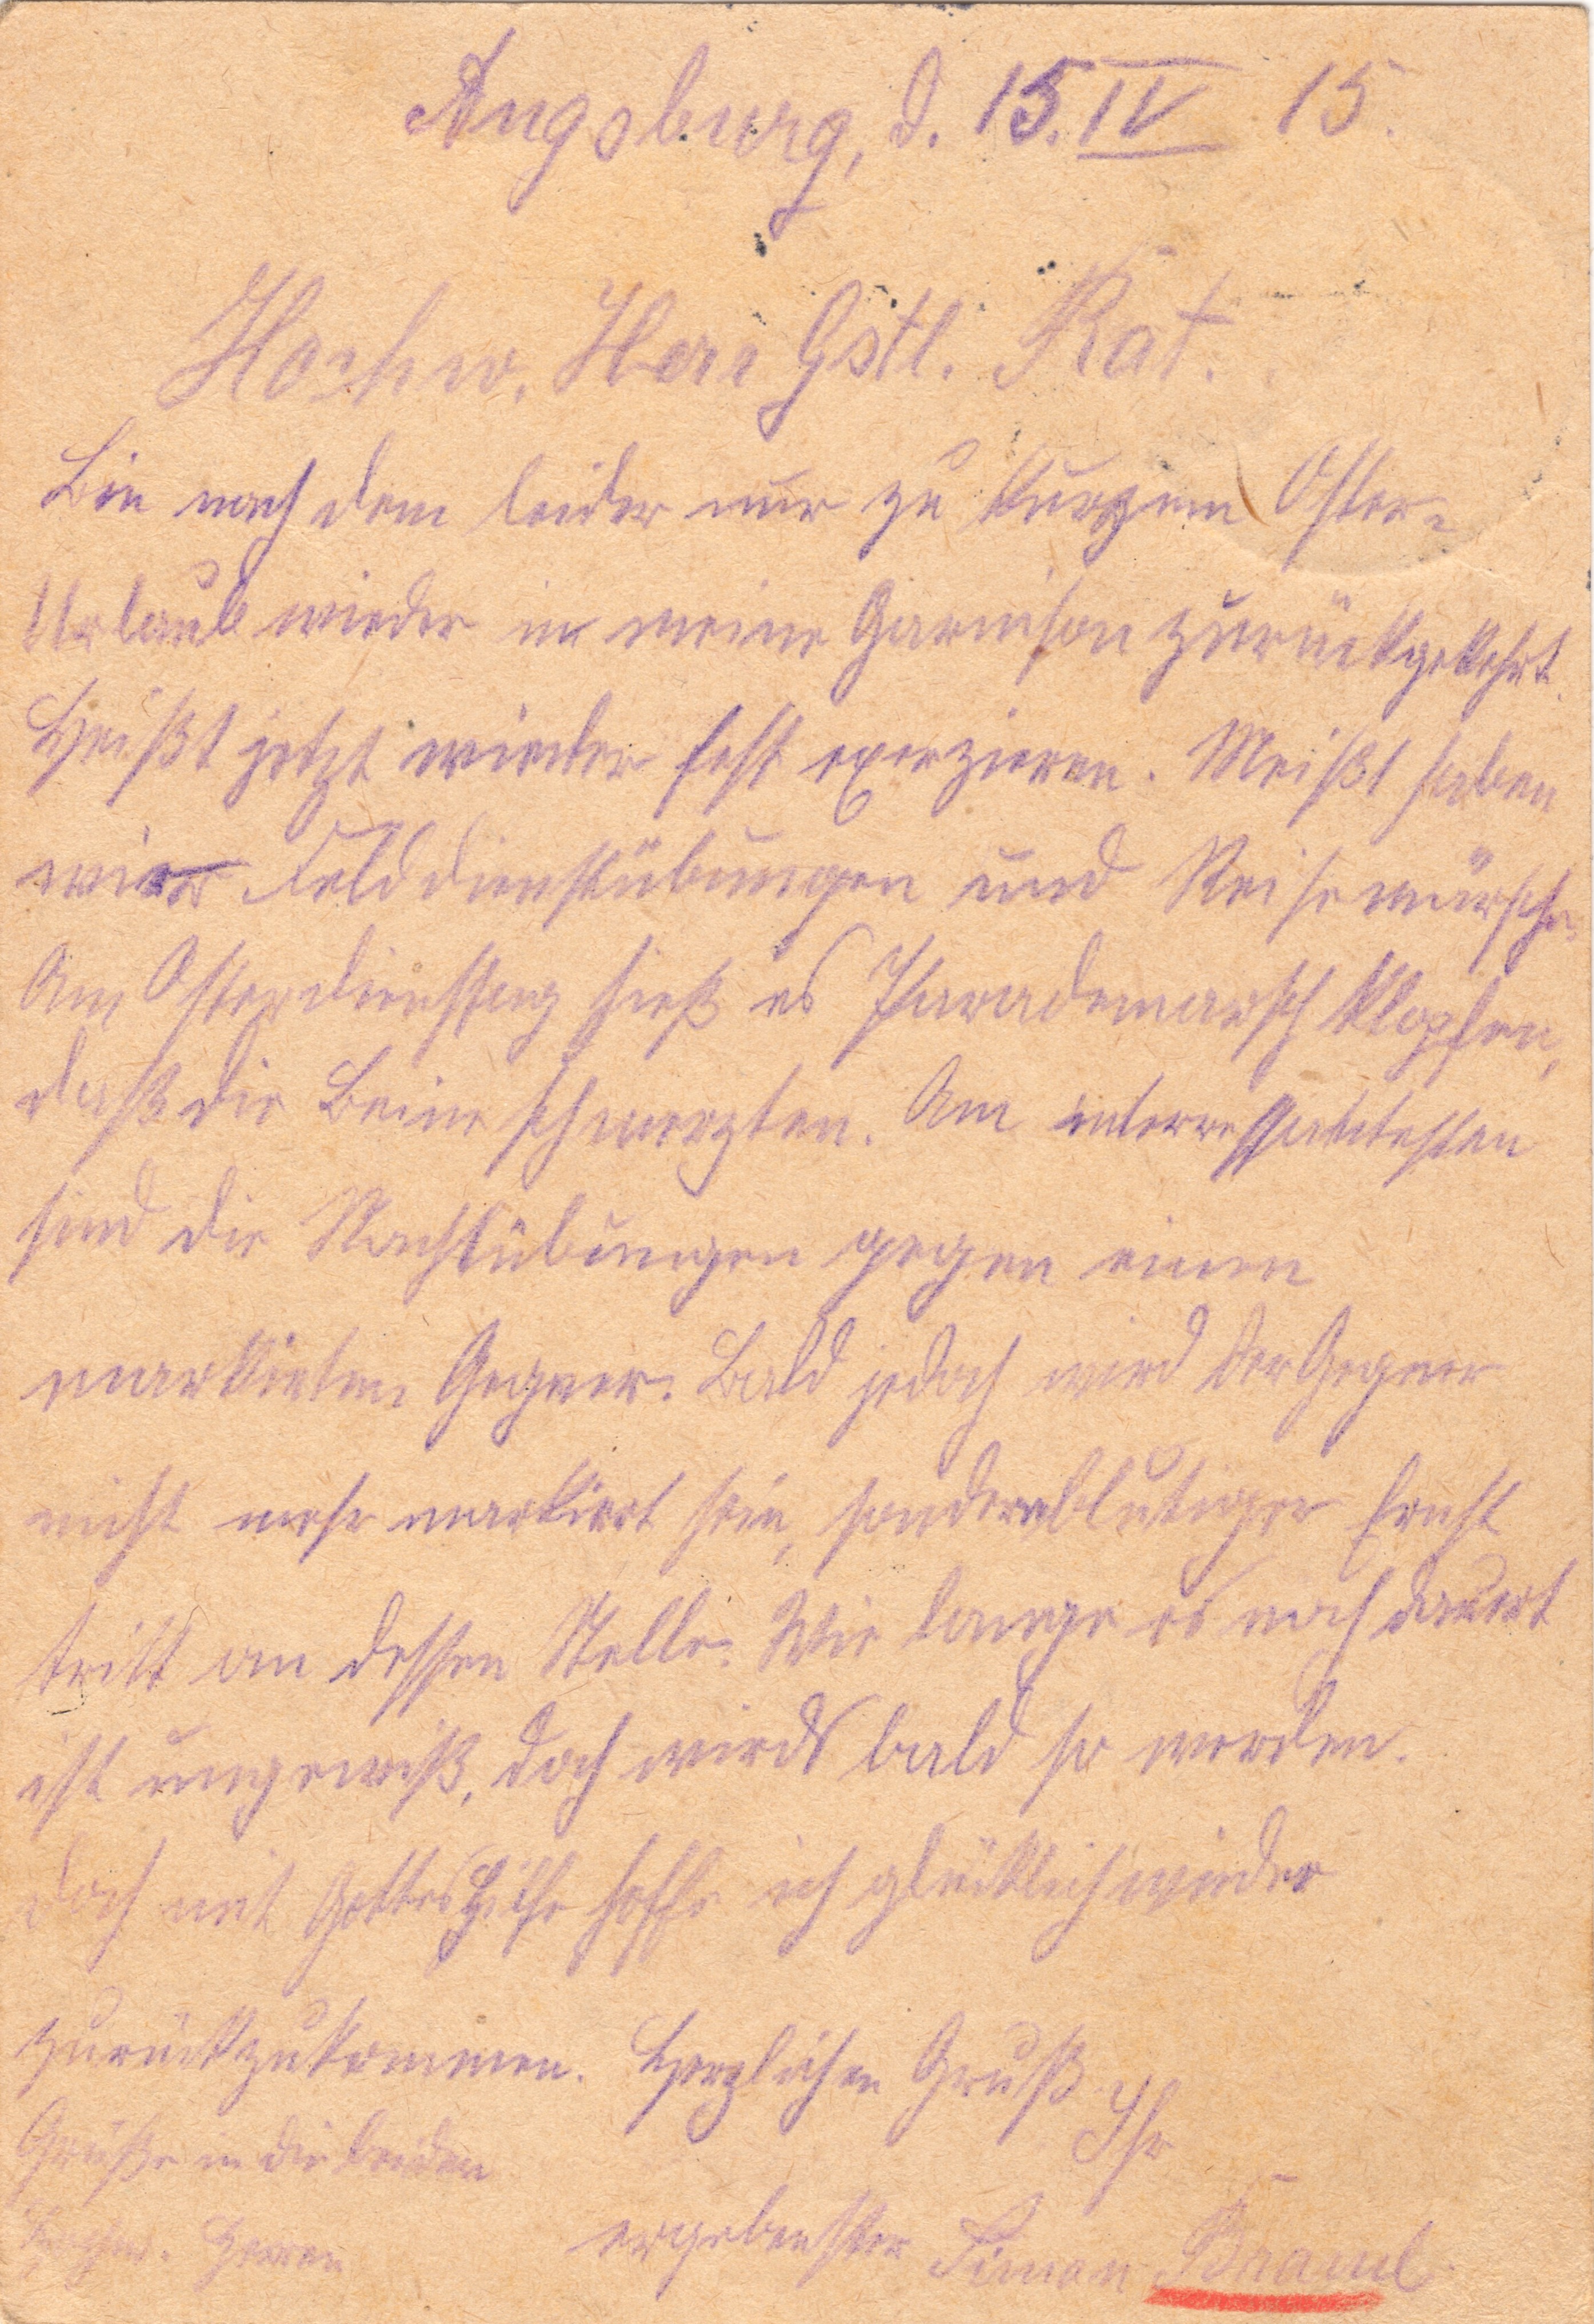 Augsburg, d. 15. IV 15.
Hochw. Herr Gstl. Rat.
Bin nach dem leider nur zu kurzem Oster-
Urlaub wieder in meine Garnison zurückgekehrt.
Heißt jetzt wieder fest exerzieren. Meißt haben
wir Felddienstübungen und Reisemärsche.
Am Osterdienstag hieß es Parademarsch klopfen,
daß die Beine schmerzten. Am interressantesten
sind die Nachtübungen gegen einen
markierten Gegner. Bald jedoch wird der Gegner
nicht mehr markiert sein, sondern blutiger Ernst
tritt an dessen Stelle. Wie lange es noch dauert
ist ungewiß, doch wirds bald so werden.
Doch mit Gottes Hilfe hoffe ich glücklich wieder
zurückzukommen. Herzlichen Gruß
Ihr
Grüße in die beiden
Hochw. Herren
ergebenster Simon Braml